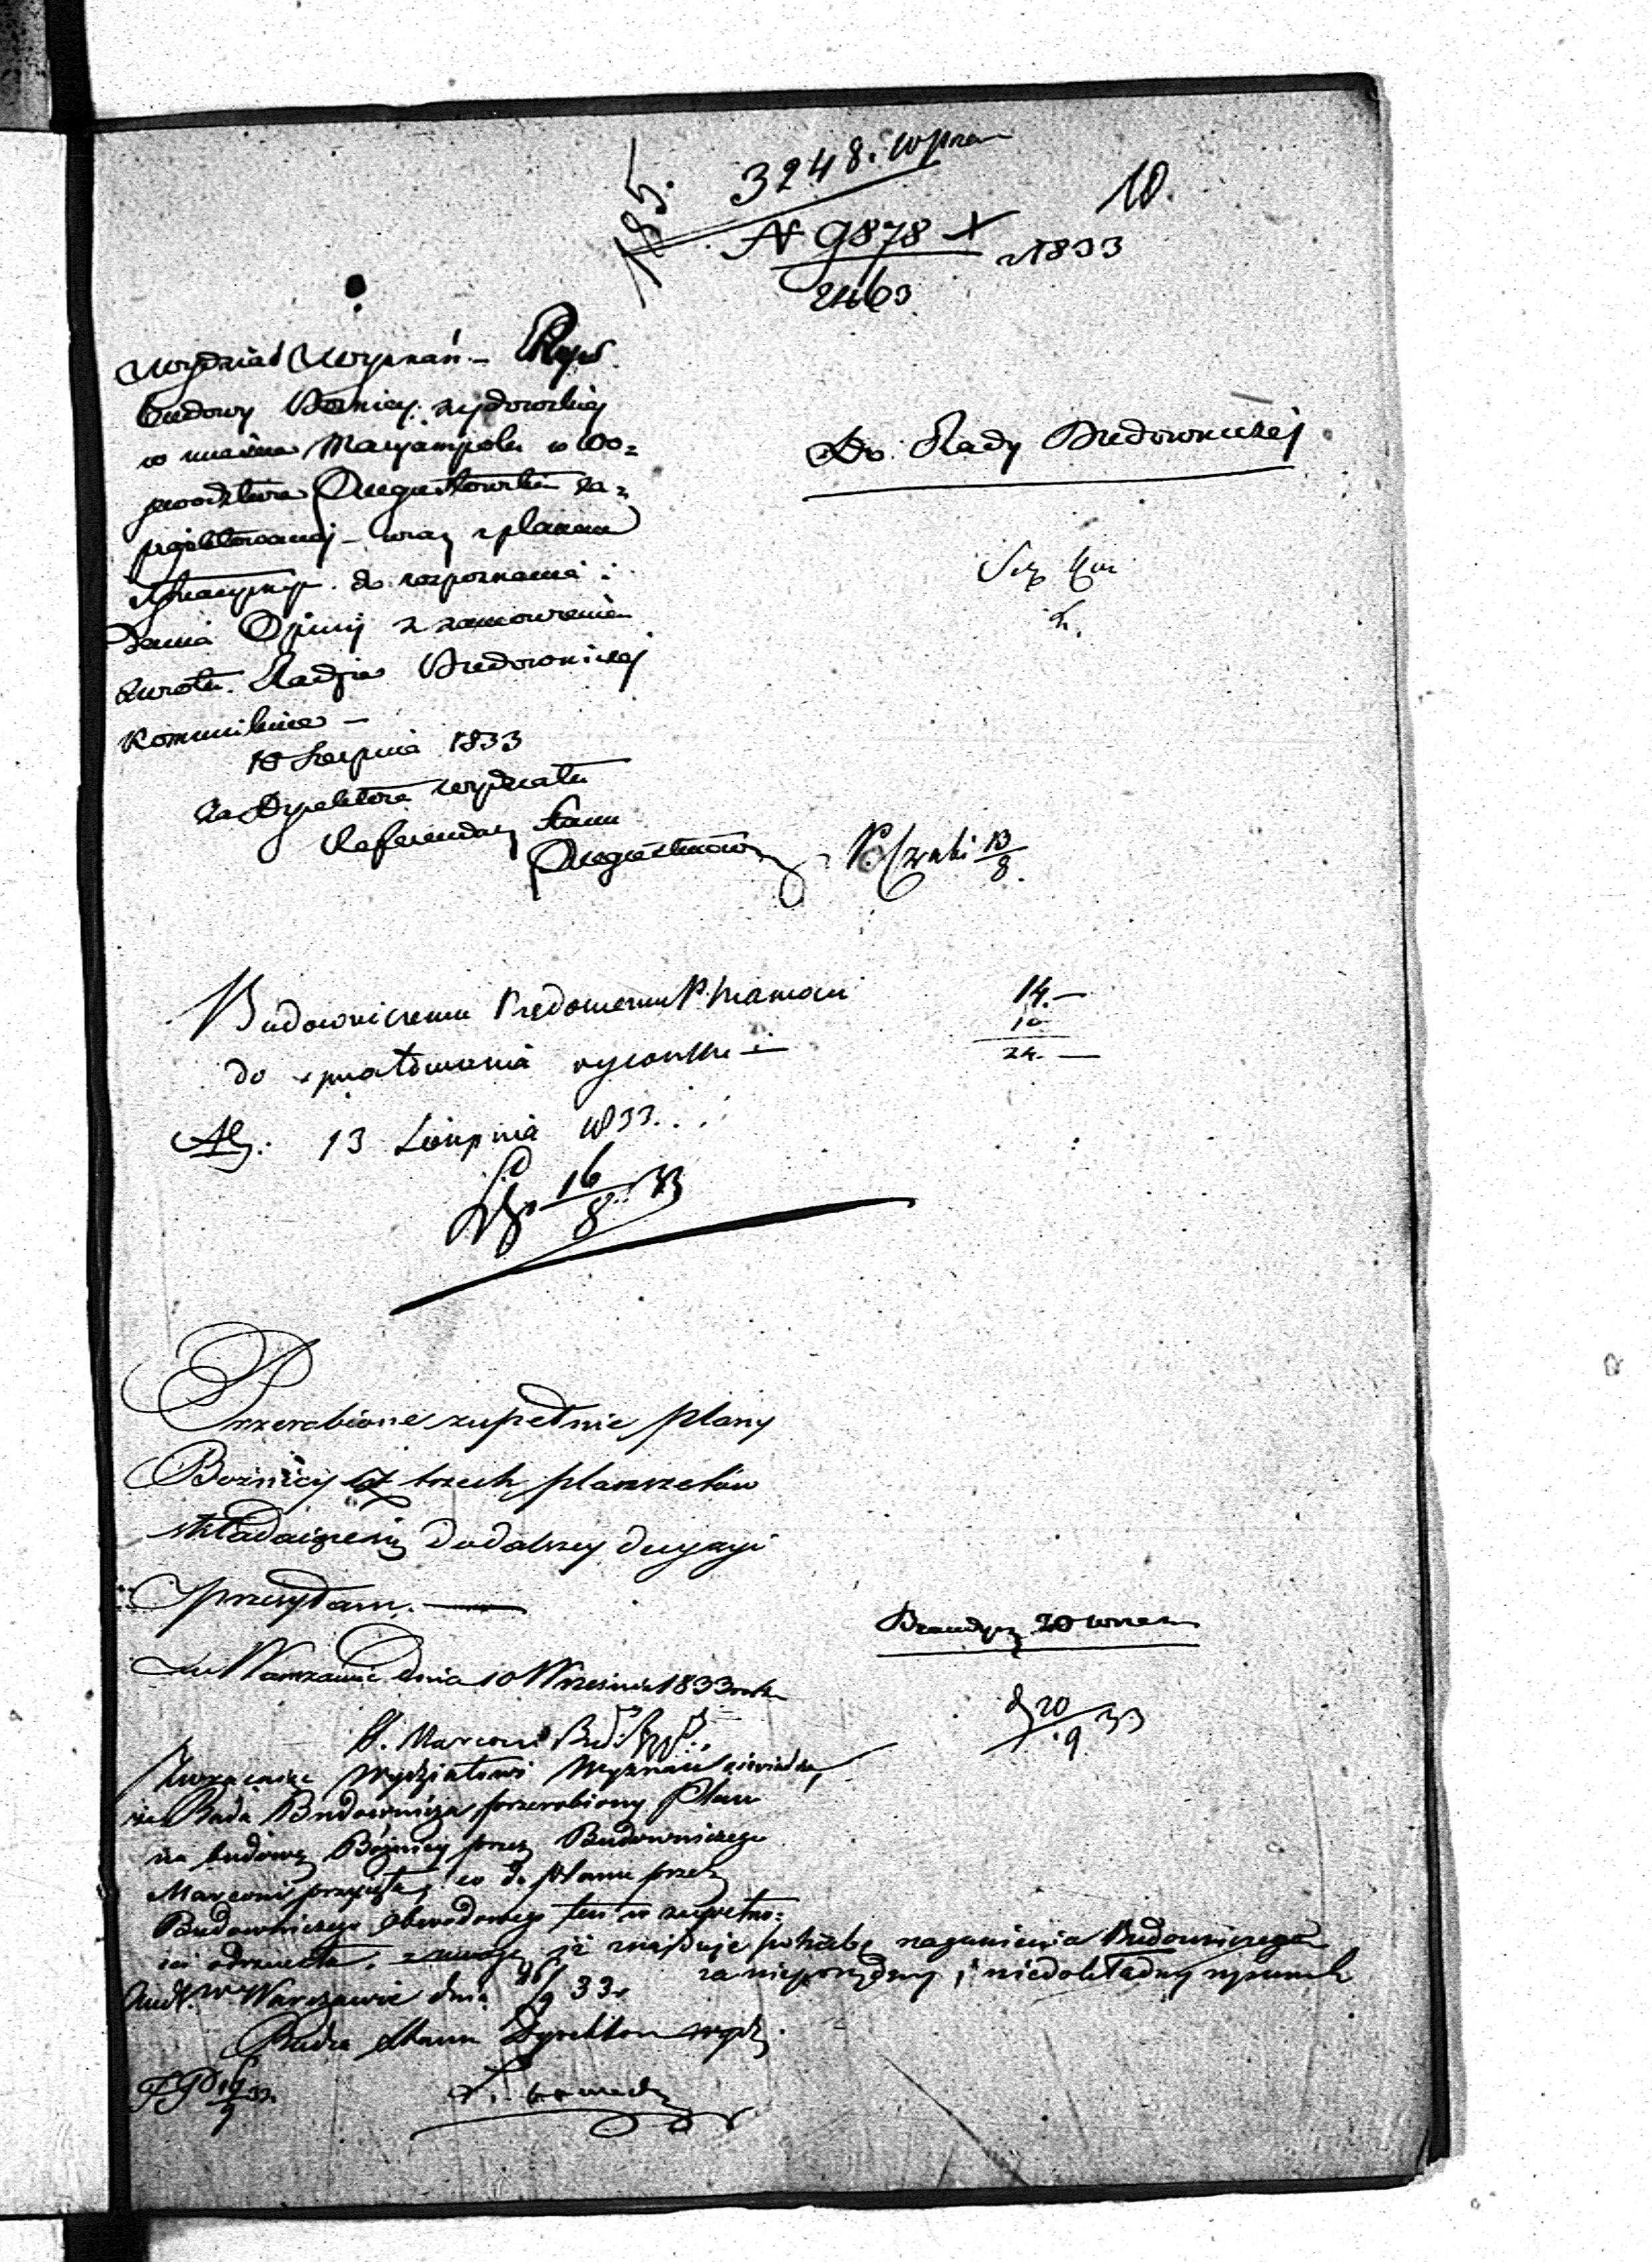 3248. Wyzna
185
10.
N 9878
1833
2463
Wydział Wyznań – Rys
budowy Bożnicy żydowskiej
w mieście Maryampolu w Wo=
jewództwie Augustowskim za=
projektowanej – wraz z planem
sytuacyjnym do rozpoznania i
dania Opinij z zamówieniem
zwrotu Radzie Budowniczej
Kommunikuje –
10 Sierpnia 1833
Za Dyrektora Wydziału
Referendarz Stanu
Do Rady Budowniczej
13/8.
Budowniczemu Rządowemu P. Marconi
do sprawdzenia rysunku
13 Sierpnia 1833.
14.—
10
24.—
16/8 33
Przerobione zupełnie plany
Bożnicy z trzech planszetów
składaiące się do dalszey decyzyi
przesyłam. —
w Warszawie dnia 10 Wrześnie 1833 roku
H. Marconi Bud:
20 wrze
20/9 33
Zwracaiąc Wydziałowi Wyznań oświadcza,
że Rada Budownicza przerobiony Plan
na budowę Bożnicy przez Budowniczego
Marconi przyjęła, co do planu przez
Budowniczego Obwodowego ten w zupełno=
ści odrzuciła, z uwagą iż znajduje potrzebę naganienia Budowniczego
za nieporządny i niedokładny rysunek
w Warszawie dnia /9 33.
Radca Stanu Dyrektor Wydz.